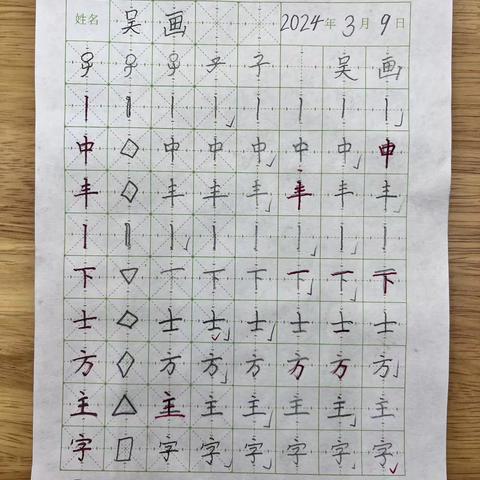 姓名 吴画 2024年3月9日
子 子 吴 画
丨 丨 丨 丨 丨 丨 丨
中 中 中 中 中 中 中
丰 丰 丰 丰 丰 丰 丰
丨 丨 丨 丨 丨 丨 丨
下 下 下 下 下 下 下
士 士 士 士 士 士 士
方 方 方 方 方 方 方
主 主 主 主 主 主 主
字 字 字 字 字 字 字